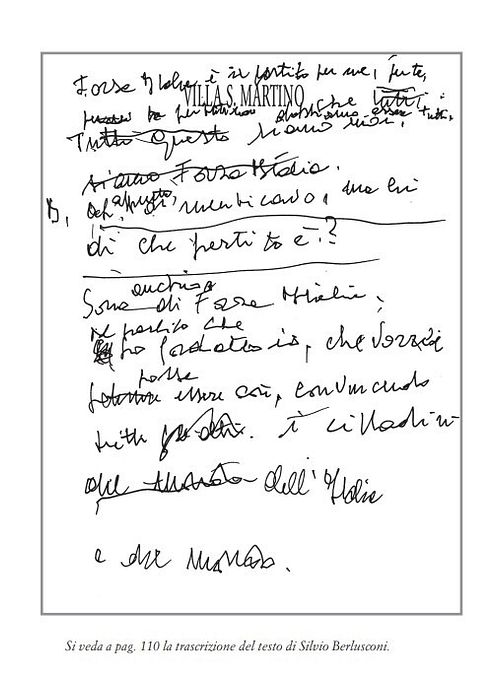 Forza Italia è il partito per me, per te,
VILLA S. MARTINO
per che dobbiamo essere tutti,
Tutti questo siamo noi.
siamo Forza Italia.
B, appunto,
Ah, dimenticavo, ma lei
di che partito è?
anch'io
Sono di Forza Italia,
il partito che
ho fondato io, che vorrei
possa
essere così, convincendo
tutti gli altri. I cittadini
del mondo dell'Italia
e del mondo.
Si veda a pag. 110 la trascrizione del testo di Silvio Berlusconi.